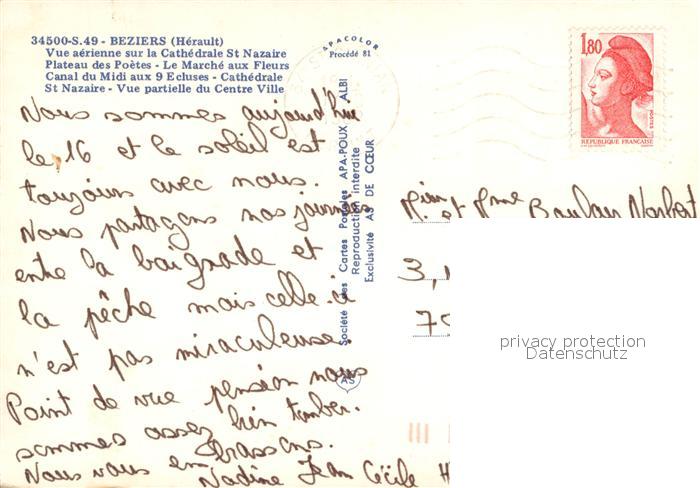 34500-S.49 - BEZIERS (Hérault)
Vue aérienne sur la Cathédrale St Nazaire
Plateau des Poètes - Le Marché aux Fleurs
Canal du Midi aux 9 Ecluses - Cathédrale
St Nazaire - Vue partielle du Centre Ville
APACOLOR
Procédé 81
1,80
POSTES
REPUBLIQUE FRANÇAISE
Nous sommes aujourd'hui
le 16 et le soleil est
toujours avec nous.
Nous partageons nos journées
entre la baignade et
la pêche mais celle-ci
n'est pas miraculeuse.
Point de vue pension nous
sommes assez bien tomber.
Nous vous embrassons.
Nadine Jean Cécile H
Société des Cartes Postales APA-POUX ALBI
Reproduction interdite
Exclusivité AS DE CŒUR
AS
et Mme Norbert
3,
privacy protection
Datenschutz